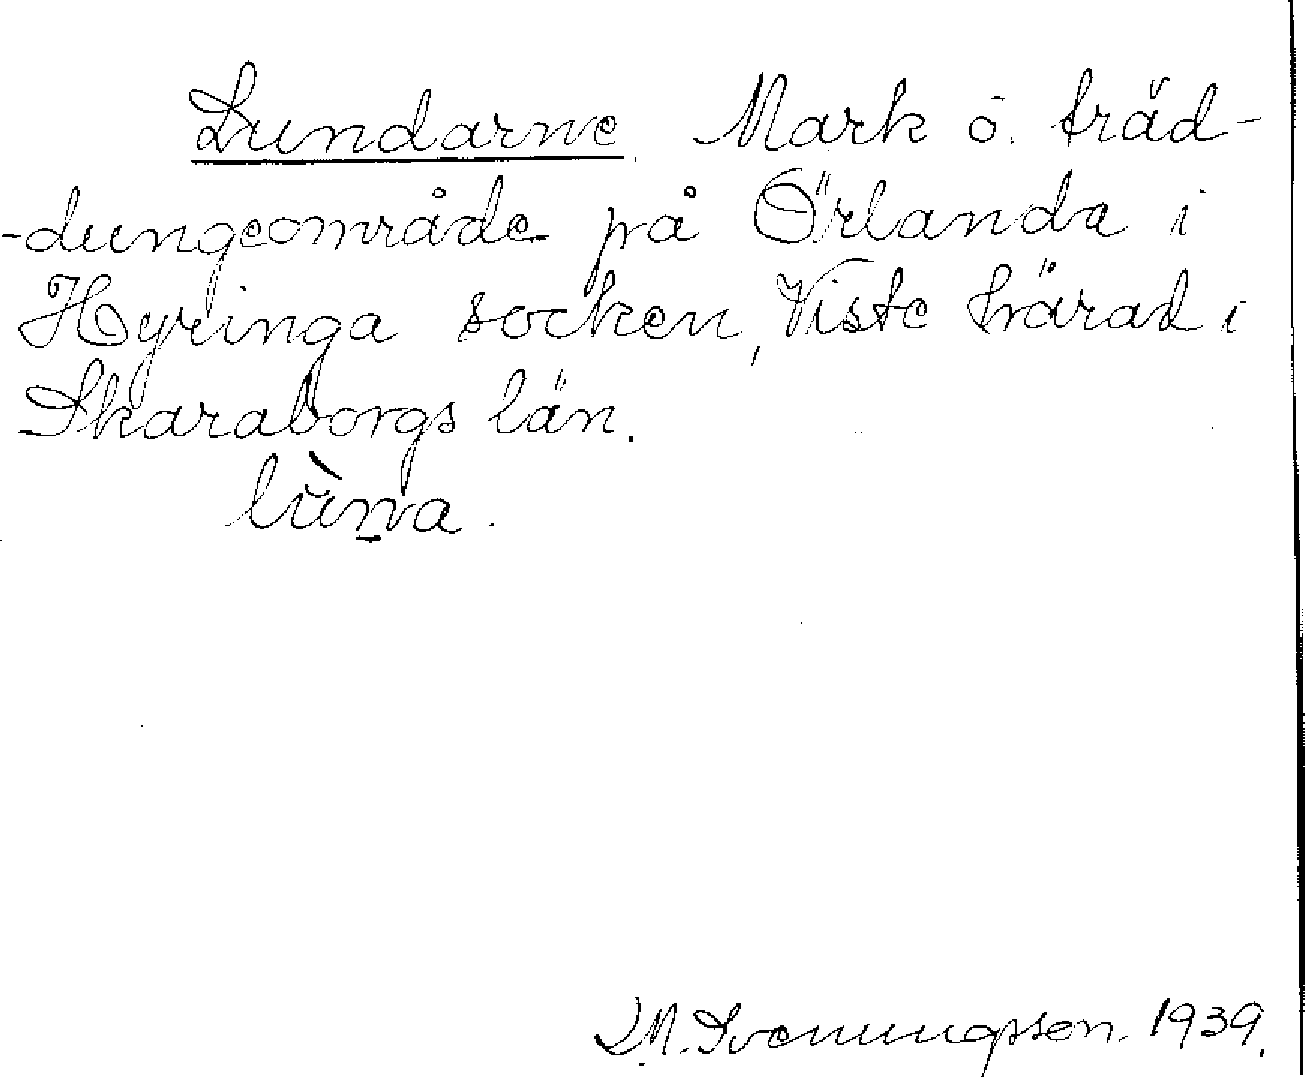 Lundarne Mark o. träd-
-dungeområde på Örlanda i
Hyringa socken, Viste härad i
Skaraborgs län.
lùn̲na.
M. Svenungsson. 1939.